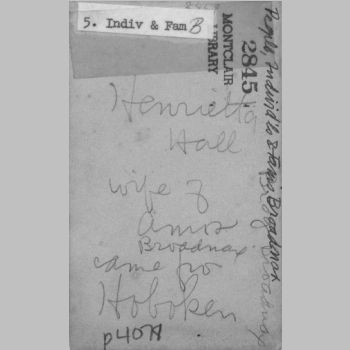 5. Indiv & Fam B
MONTCLAIR
LIBRARY
2845
Henrietta
Hall
wife of
Amos
Broadnax
came fro
Hoboken
p407A
People, Individ'ls & Fams, Broadnax
Broadnax